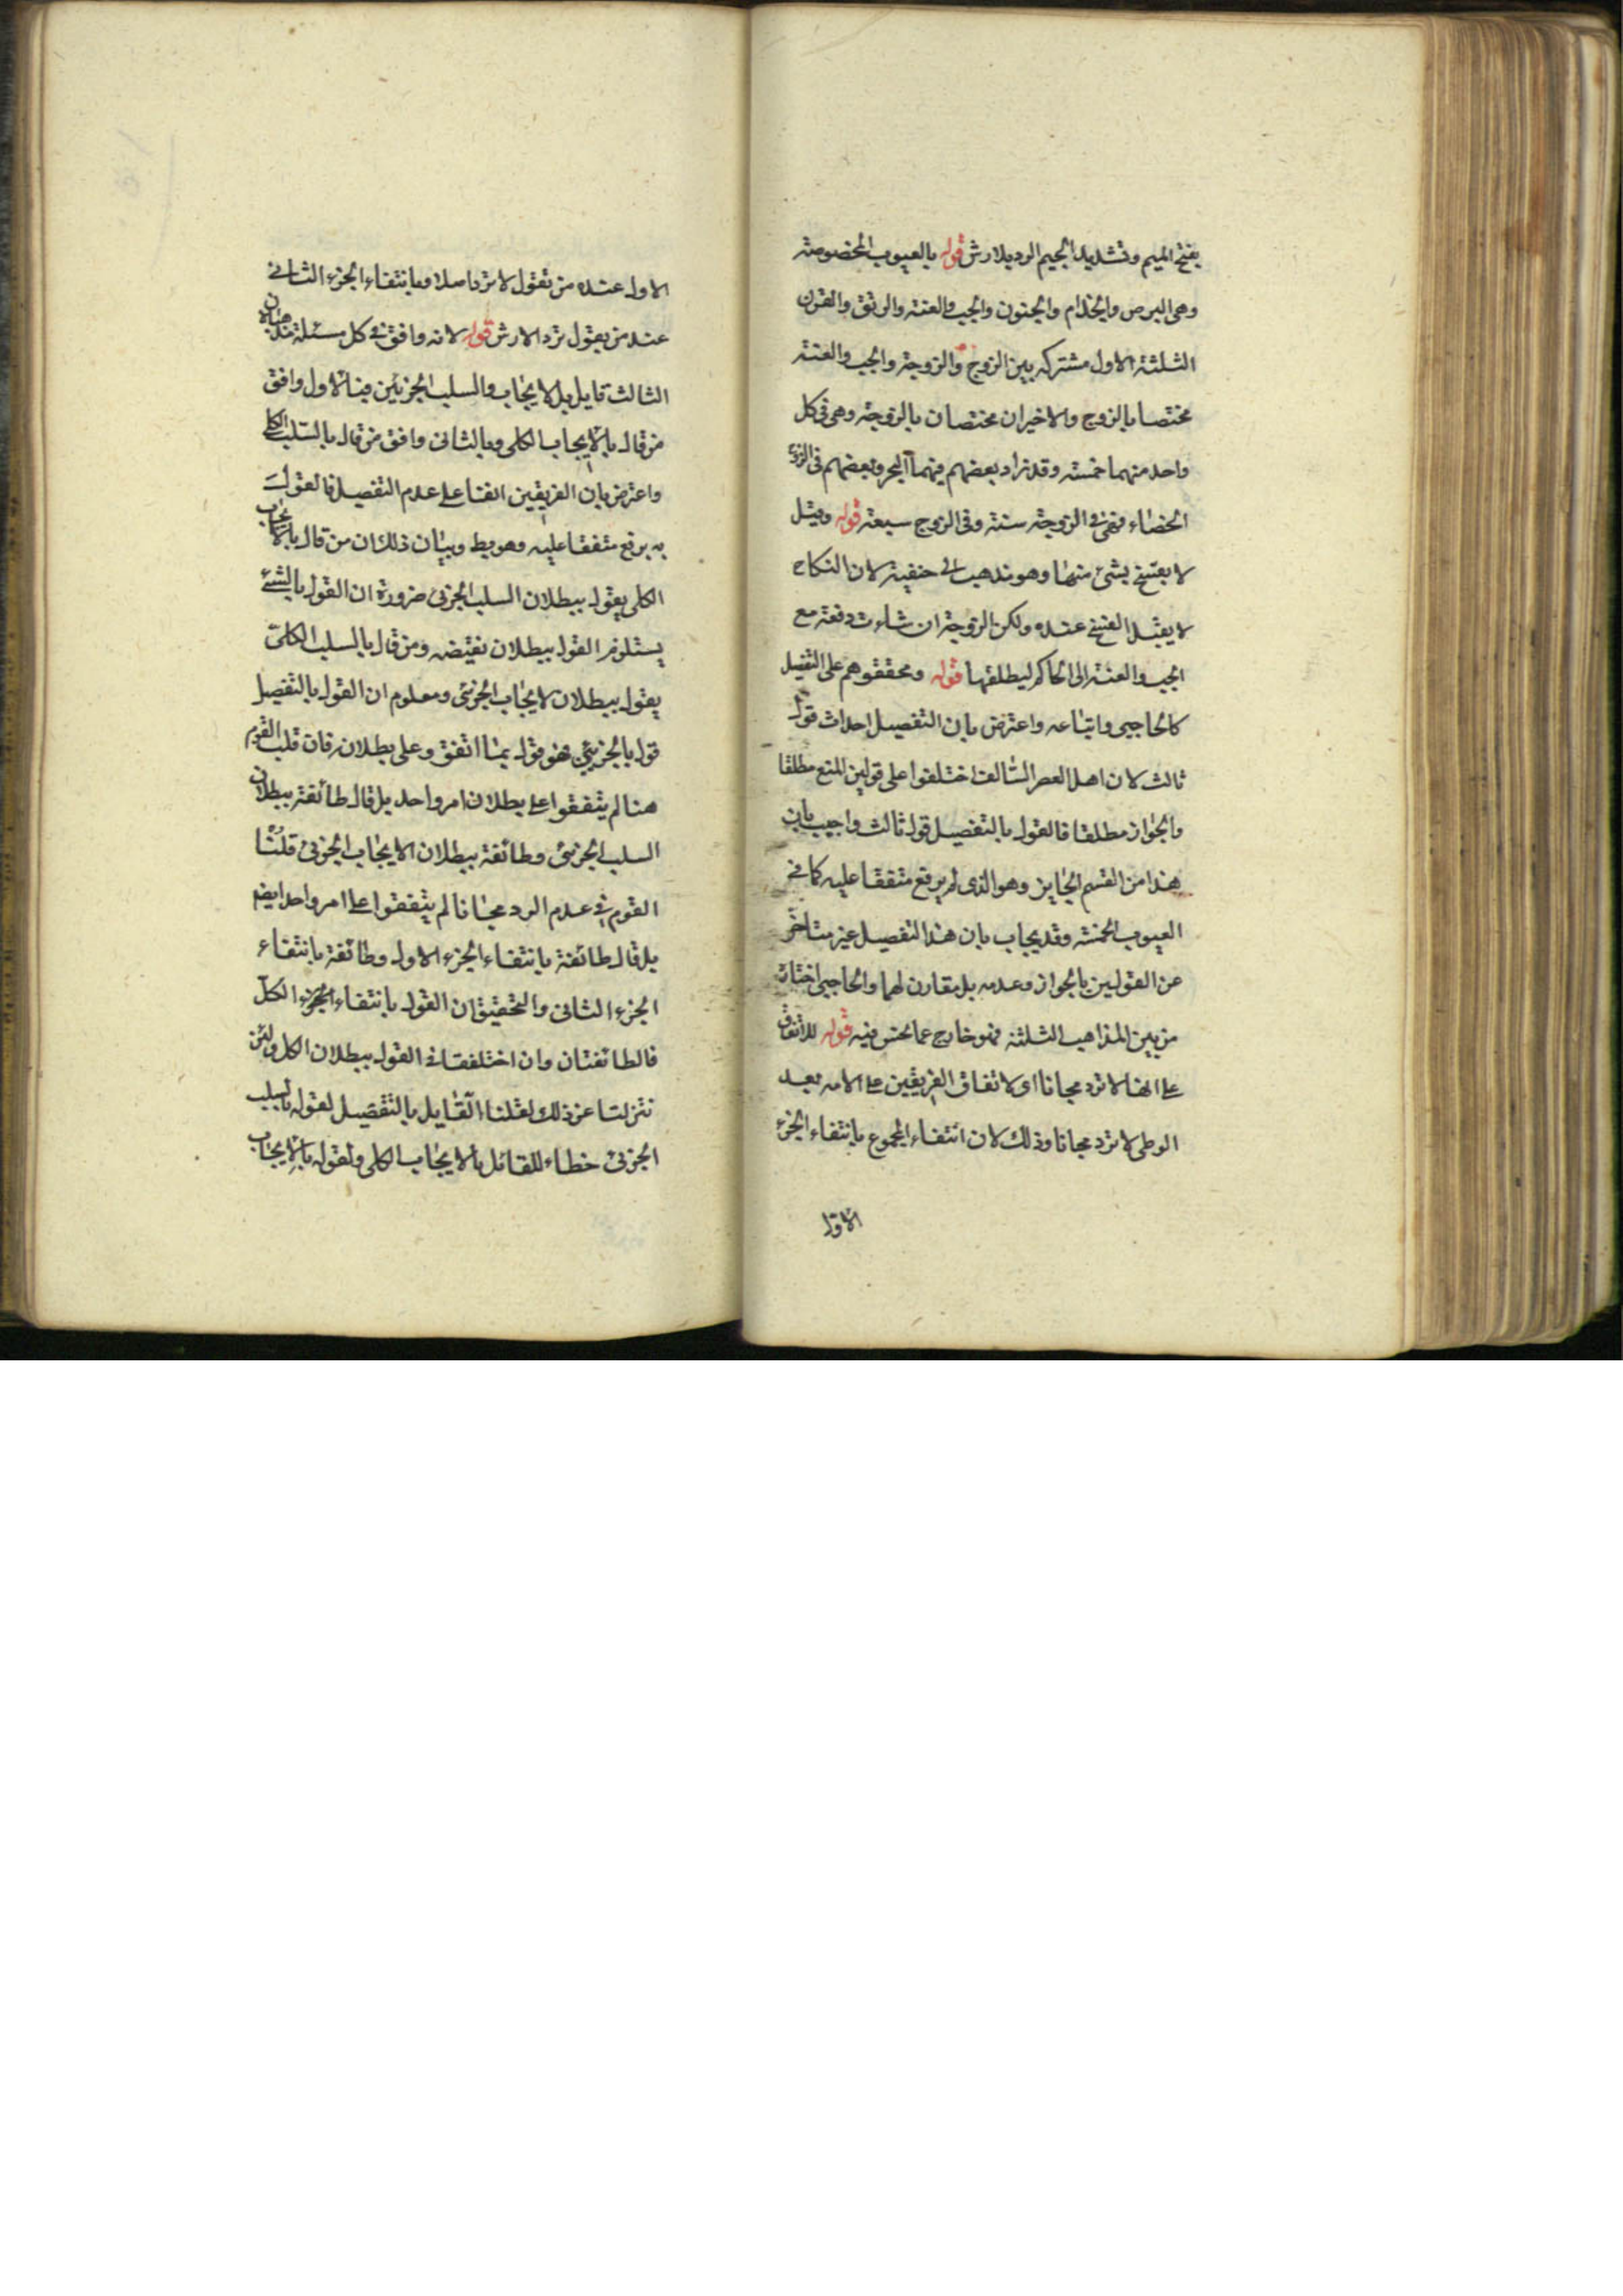 بفتح الميم وتشديد الجيم الرد بلا ارش قوله بالعيوب المخصوصة
وهى البرص والجذام والجنون والجب والعنة والرتق والقرن
الثلثة الاول مشتركه بين الزوج والزوجة والجب والعنة
مختصا بالزوج والاخيران مختصان بالزوجة وهى فى كل
واحد منهما خمسة وقد زاد بعضهم فيهما البخر وبعضهم فى الزوج
الخصاء فهى فى الزوجة ستة وفى الزوج سبعة قوله وقيل
لا يفسخ بشئ منها وهو مذهب ابى حنفية لان النكاح
لا يقبل الفسخ عنده ولكن الزوجة ان شاءت دفعة مع
الجب والعنة الى الحاكم ليطلقها قوله ومحققوهم على التفصيل
كالحاجبى واتباعه واعترض بان التفصيل احداث قول
ثالث لان اهل العصر السالف اختلفوا على قولين المنع مطلقا
والجواز مطلقا فالقول بالتفصيل قول ثالث واجيب بان
هذا من القسم الجايز وهو الذى لم يرفع متفقا عليه كما فى
العيوب الخمسة وقد يجاب بان هذا التفصيل غير متاخر
عن القولين بالجواز وعدمه بل مقارن لهما والحاجبى اختاره
من بين المذاهب الثلثة فهو خارج عما نحن فيه قوله للاتفاق
على انها لا ترد مجانا اى لاتفاق الفريقين على الامه بعد
الوطى لا ترد مجانا وذلك لان انتفاء المجموع بانتفاء الجزء
الاول
الاول عنده من تقول لا ترد اصلا وبانتفاء الجزء الثانى
عند من يقول ترد الارش قوله لانه وافق فى كل مسئلة مذهبا لان
الثالث قايل بالايجاب والسلب الجزئين فبالاول وافق
من قال بالايجاب الكلى وبالثانى وافق من قال بالسلب الكلى
واعترض بان الفريقين اتفقا على عدم التفصيل فالقول
به يرفع متفقا عليه وهو بط وبيان ذلك ان من قال بالايجاب
الكلى يقول ببطلان السلب الجزئى ضرورة ان القول بالشئ
يستلزم القول ببطلان نقيضه ومن قال بالسلب الكلى
يقول ببطلان الايجاب الجزئى ومعلوم ان القول بالتفصيل
قول بالجزيئين فهو قول بما اتفق وعلى بطلانه فان قلت القوم
هنا لم يتفقوا على بطلان امر واحد بل قال طائفة ببطلان
السلب الجزئى وطائفة ببطلان الايجاب الجزئى قلنا
القوم فى عدم الرد مجانا لم يتفقوا على امر واحد ايضا
بل قال طائفة بانتفاء الجزء الاول وطائفة بانتفاء
الجزء الثانى والتحقيق ان القول بانتفاء الجزء الكل
فالطائفتان وان اختلفقا فى القول ببطلان الكل ولئن
تنزلنا عن ذلك لقلنا القايل بالتفصيل لقوله بالسلب
الجزئى خطاء للقائل بالايجاب الكلى ولقوله بالايجاب